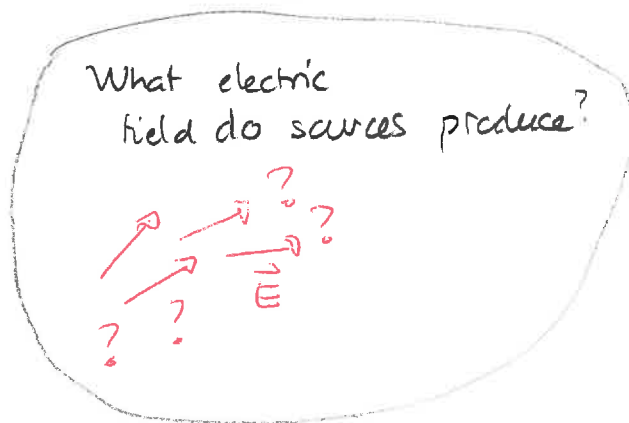 What electric
field do sources produce?
? ?
E
? ?